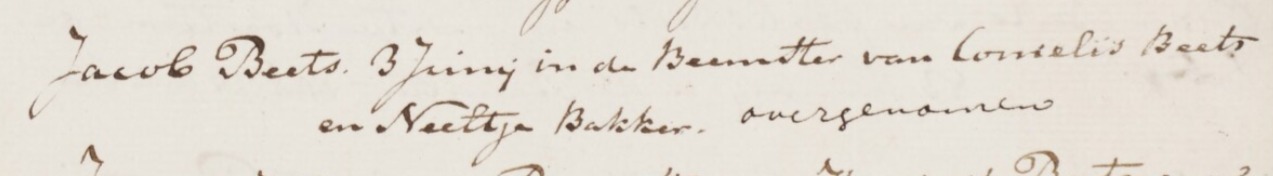 Jacob Beets. 3 Junij in de Beemster van Cornelis Beets
en Neeltje Bakker. overgenomen